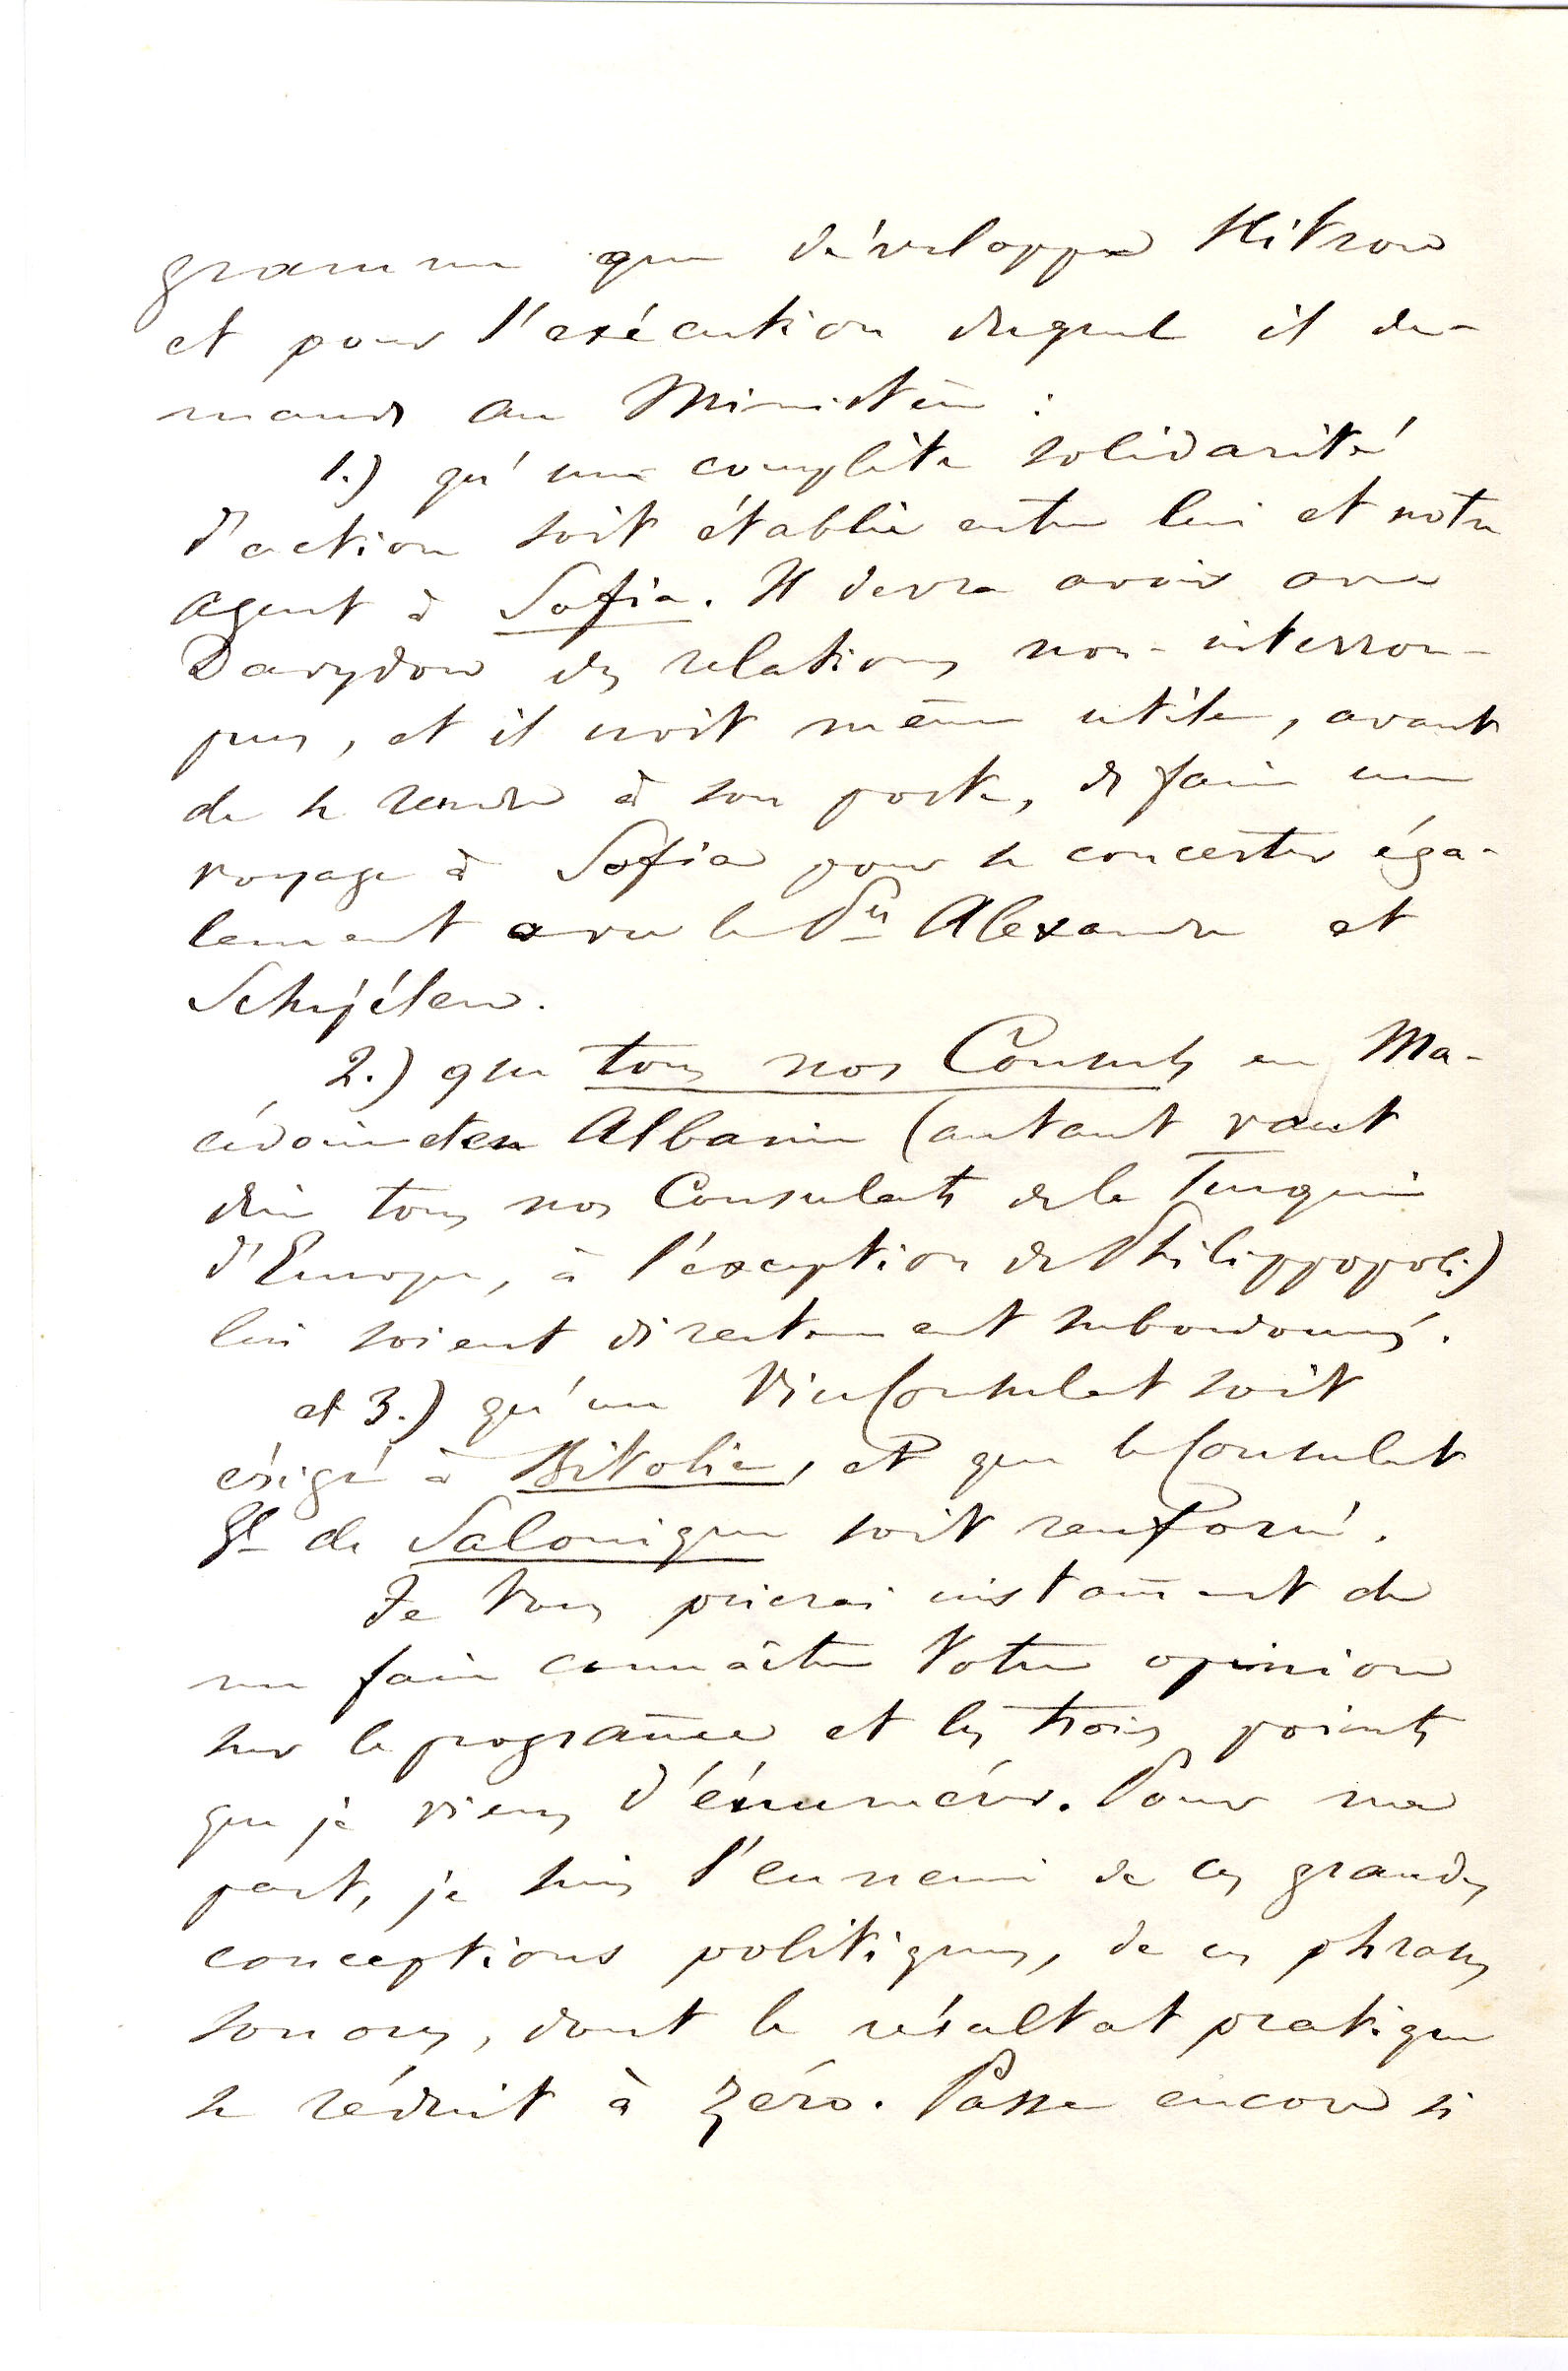 gramme que développe Hitrow
et pour l'exécution duquel il de-
mande au Ministère :
1.) qu'une complète solidarité
d'action soit établie entre lui et notre
agent à Sofia. Il devra avoir avec
Davydow des relations non-interrom-
pues, et il croit même utile, avant
de se rendre à son poste, de faire un
voyage à Sofia pour se concerter éga-
lement avec le Pce Alexandre et
Schépélew.
2.) que tous nos Consuls en Ma-
cédoine et en Albanie (autant vaut
dire tous nos Consulats de la Turquie
d'Europe, à l'éxception de Philippopoli)
lui soient directement subordonnés.
et 3.) qu'un ViceConsulat soit
érigé à Bitolia, et que le Consulat
Gl de Salonique soit renforcé.
Je Vous prierai instam̄ent de
me faire connaître Votre opinion
sur le program̄e et les trois points
que je viens d'énumérer. Pour ma
part, je suis l'ennemi de ces grandes
conceptions politiques, de ces phrases
sonores, dont le résultat pratique
se réduit à zéro. Passe encore si